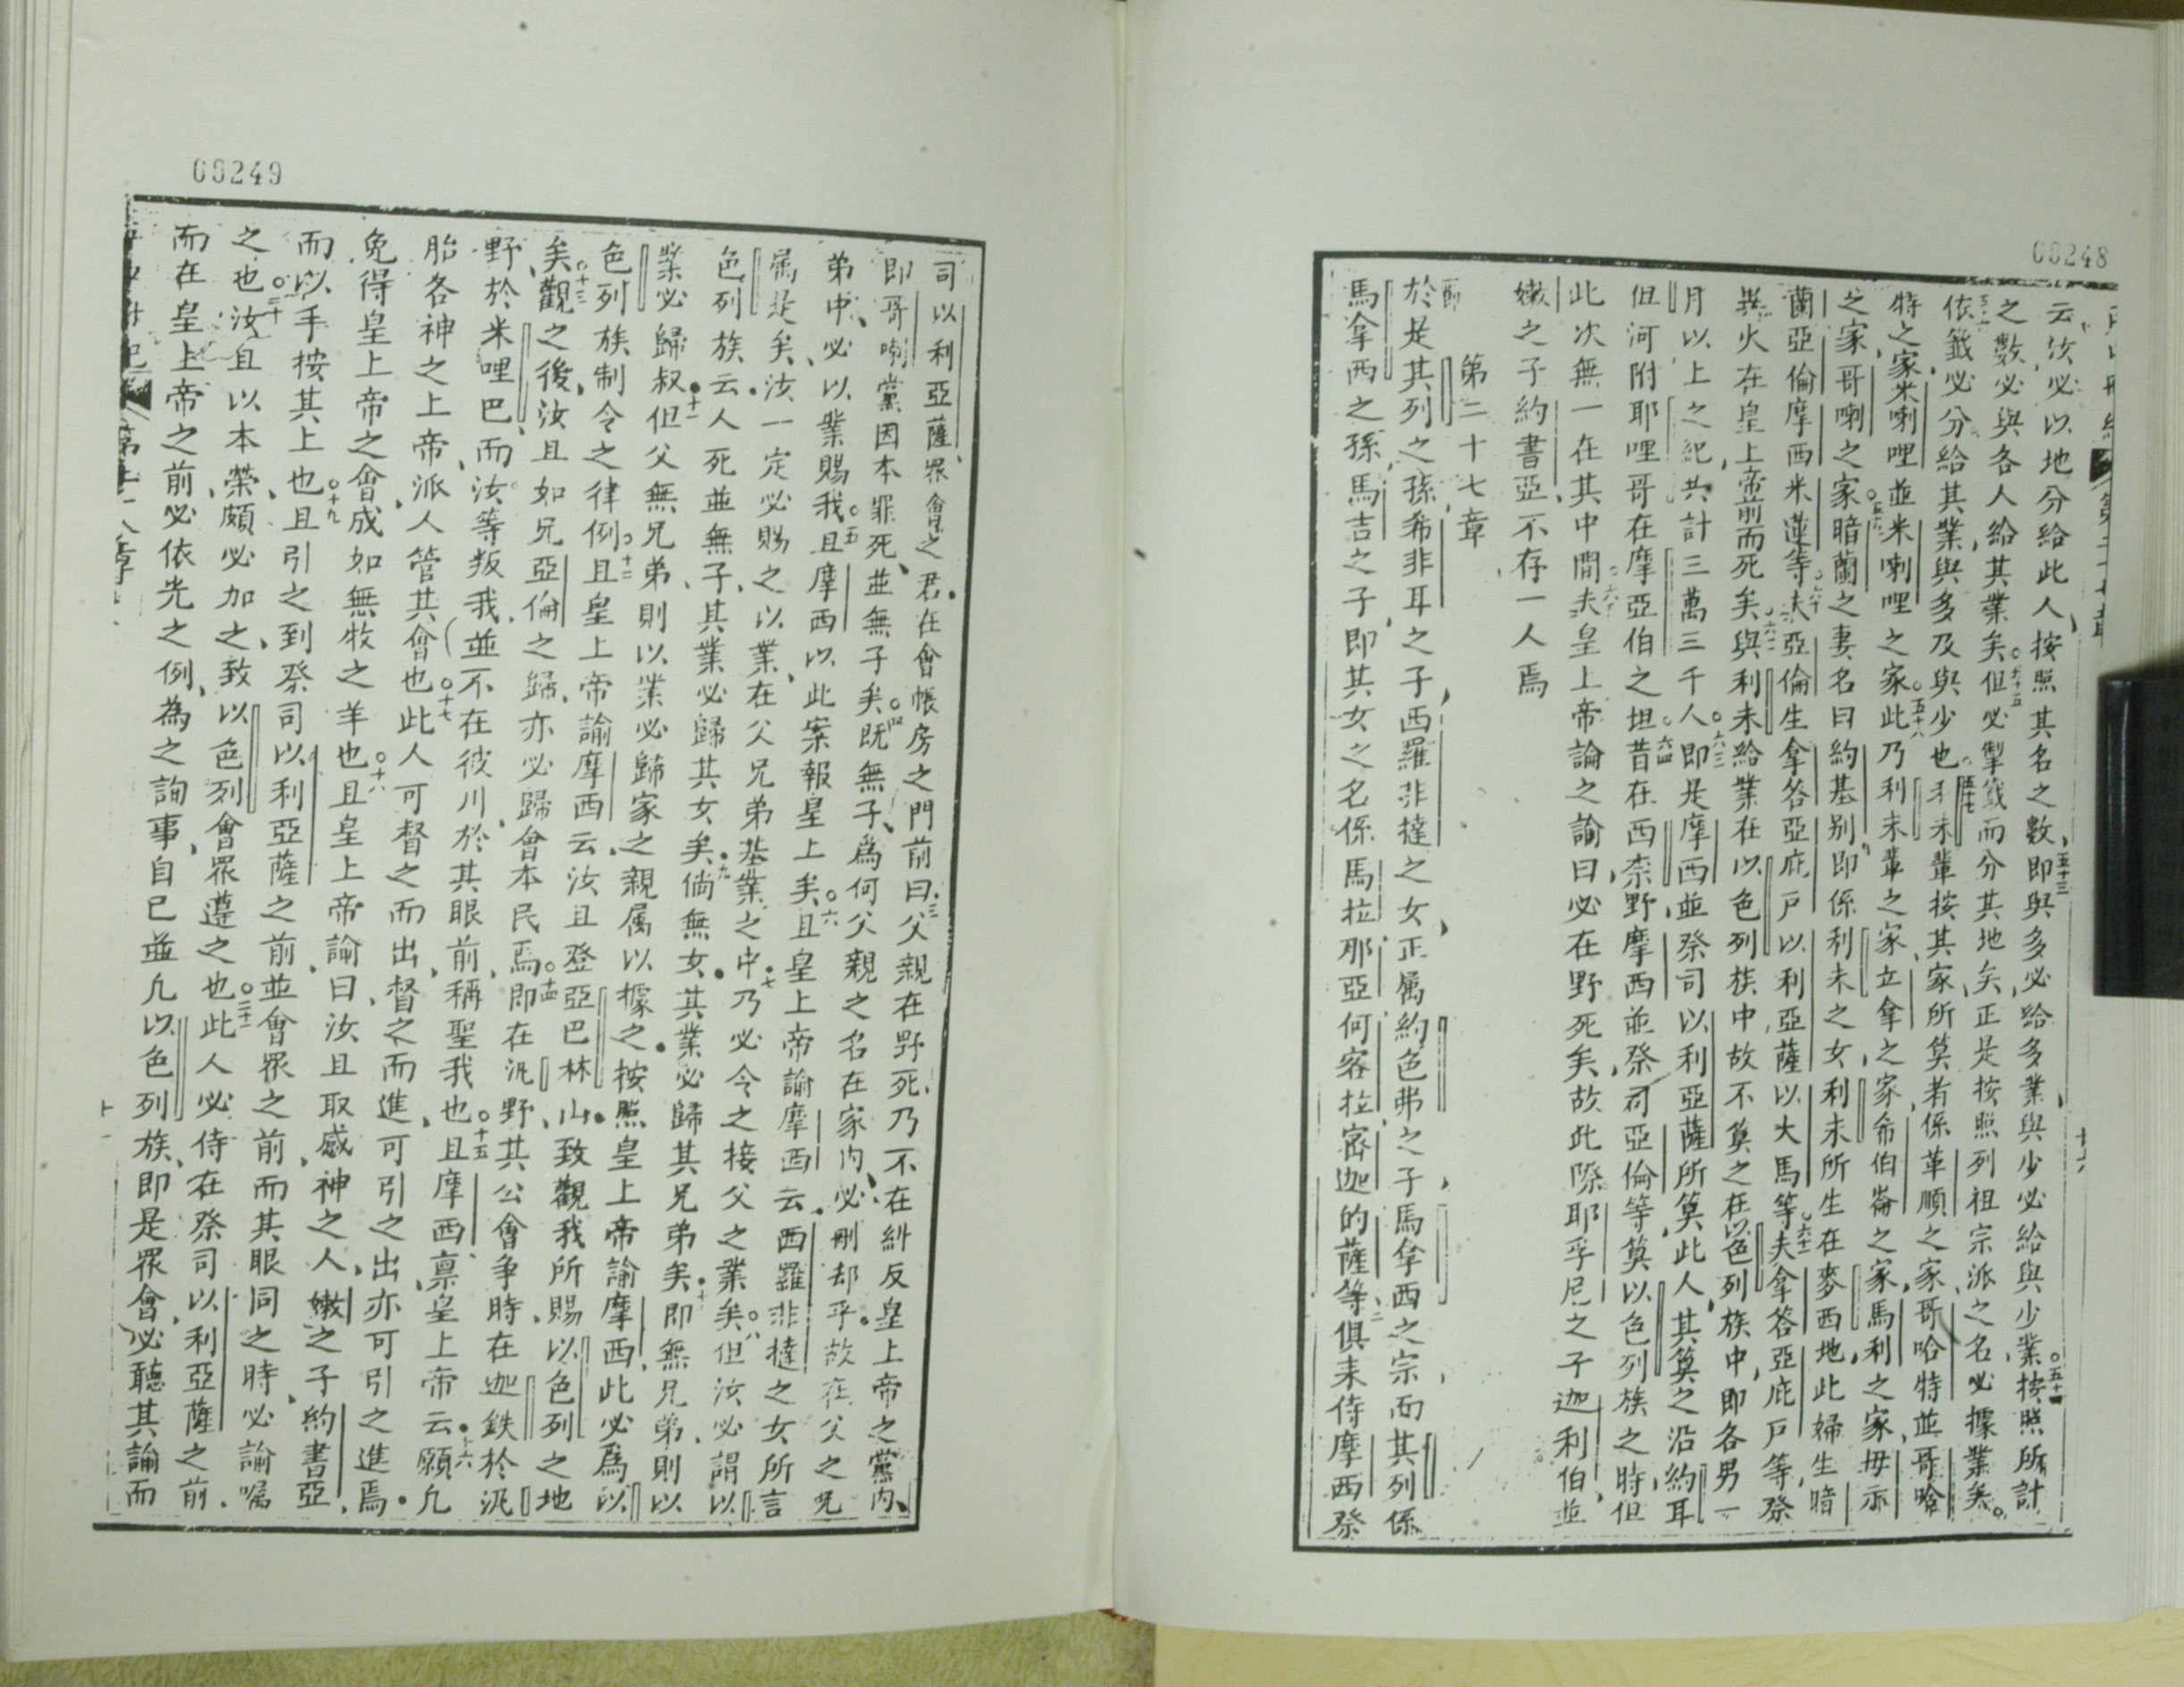 00248
云汝必以地分給此人按照其名之數五十三即與多必給多業與少必給與少業五十四按照所計
之數必與各人給其業矣五十五但必掣籤而分其地矣正是按照列祖宗派之名必據業矣
依籤必分給其業與多及與少也五十七利未輩按其家所算者係革順之家哥哈特並哥哈
特之家米喇哩並米喇哩之家此五十八乃利未輩之家立拿之家希伯崙之家馬利之家毋示
之家哥喇之家暗蘭之妻名曰約基别即係利未之女利未所生在麥西地此婦生暗
蘭亞倫摩西米蓮等六十夫亞倫生拿答亞庇戶以利亞薩以大馬等六十一夫拿答亞庇戶等祭
異火在皇上帝前而死矣六十二與利未給業在以色列族中故不算之在以色列族中即各男一
月以上之紀共計三萬三千人六十三即是摩西並祭司以利亞薩所算此人其算之沿約耳
但河附耶哩哥在摩亞伯之坦六四昔在西奈野摩西並祭司亞倫等算以色列族之時但
此次無一在其中間夫皇上帝論之諭曰必在野死矣故此際耶孚尼之子迦利伯並
嫩之子約書亞不存一人焉
第二十七章
於是其列之孫希非耳之子西羅非撻之女正属約色弗之子馬拿西之宗而其列係
馬拿西之孫馬吉之子即其女之名係馬拉那亞何客拉密迦的薩等二俱来侍摩西祭
00249
司以利亞薩眾會之君在會帳房之門前曰三父親在野死乃不在糾反皇上帝之黨内
即哥喇黨因本罪死並無子矣四既無子為何父親之名在家内必刪却乎故在父之兄
弟中必以業賜我五且摩西以此案報皇上矣六且皇上帝諭摩西云西羅非撻之女所言
属是矣汝一定必賜之以業在父兄弟基業之中七乃必令之接父之業矣八但汝必謂以
色列族云人死並無子其業必歸其女矣九倘無女其業必歸其兄弟矣十即無兄弟則以
業必歸叔十一但父無兄弟則以業必歸家之親属以據之按照皇上帝諭摩西此必為以
色列族制令之律例十二且皇上帝諭摩西云汝且登亞巴林山致觀我所賜以色列之地
矣十三觀之後汝且如兄亞倫之歸亦必歸會本民焉十四即在汛野其公會争時在迦鉄於汛
野於米哩巴而汝等叛我並不在彼川於其眼前稱聖我也十五且摩西禀皇上帝云十六願凡
胎各神之上帝派人管其會也十七此人可督之而出督之而進可引之出亦可引之進焉
免得皇上帝之會成如無牧之羊也十八且皇上帝諭曰汝且取感神之人嫩之子約書亞
而以手按其上也十九且引之到祭司以利亞薩之前並會眾之前而其眼同之時必諭囑
之也二十汝且以本榮頗必加之致以色列會眾遵之也二十一此人必侍在祭司以利亞薩之前
而在皇上帝之前必依光之例為之詢事自己並凡以色列族即是眾會必聽其諭而